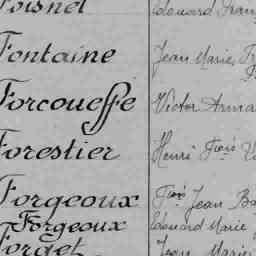 Foisnel Edouard Fran
Fontaine Jean Marie
Forcoueffe Victor Arma
Forestier Henri Fçois V
Forgeoux Fçois Jean Ba
Forgeoux Edouard Marie
Forget Jean Marie